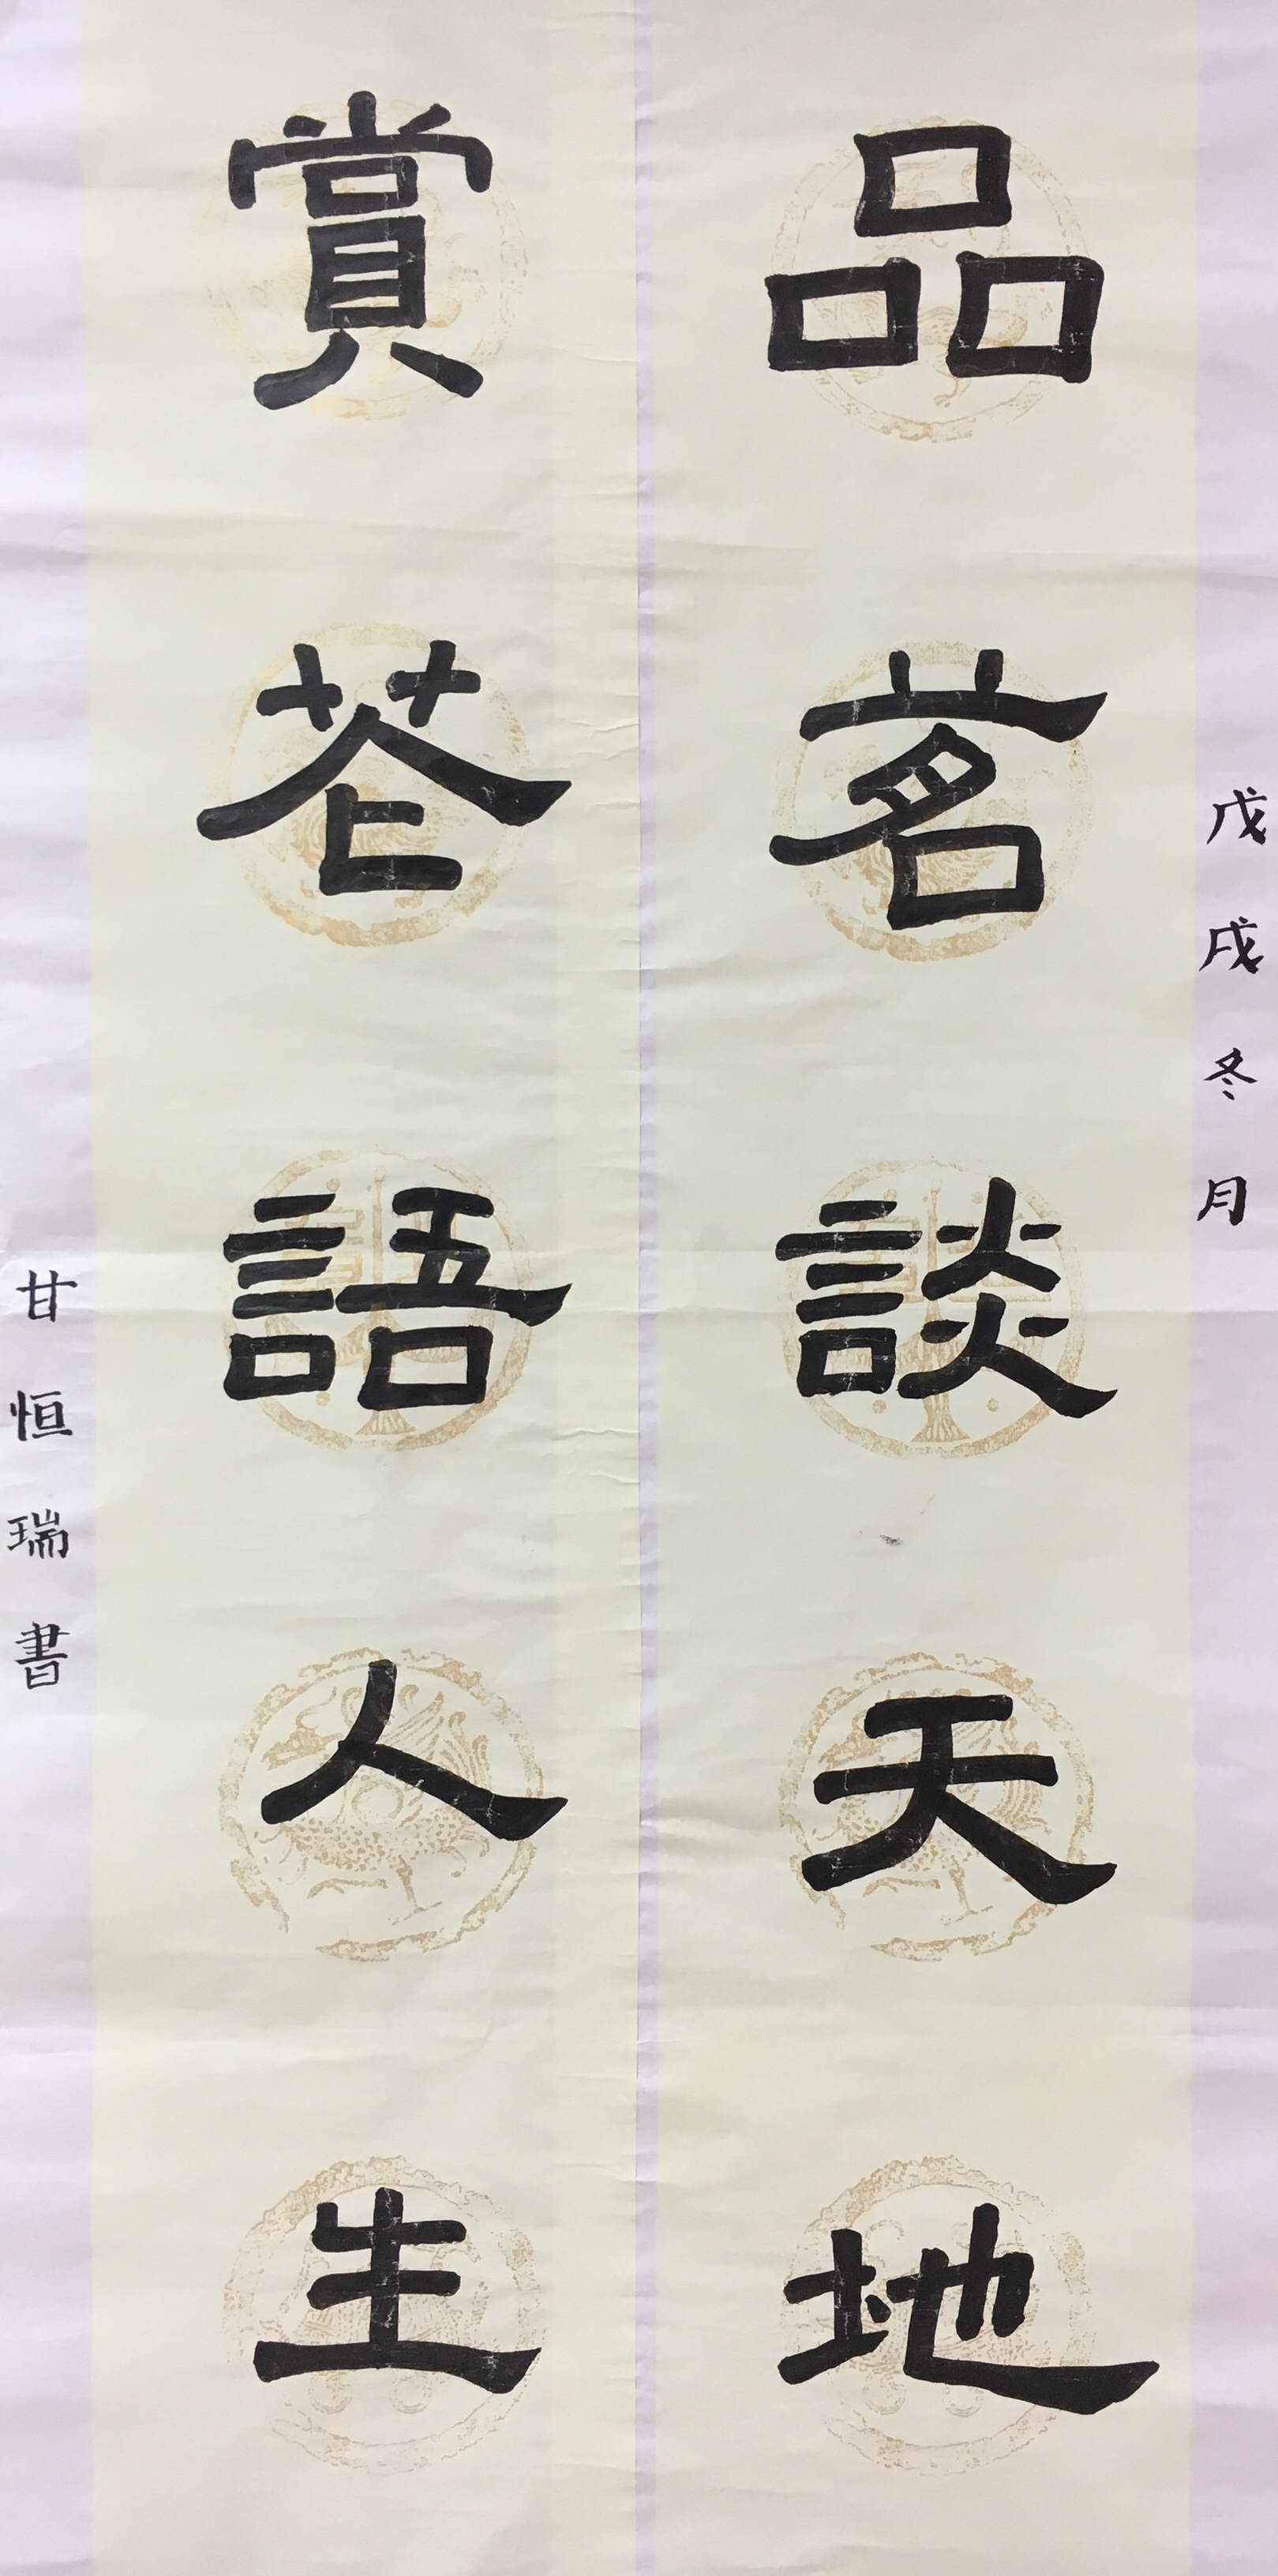 戊戌冬月
品茗談天地
賞花語人生
甘恒瑞書